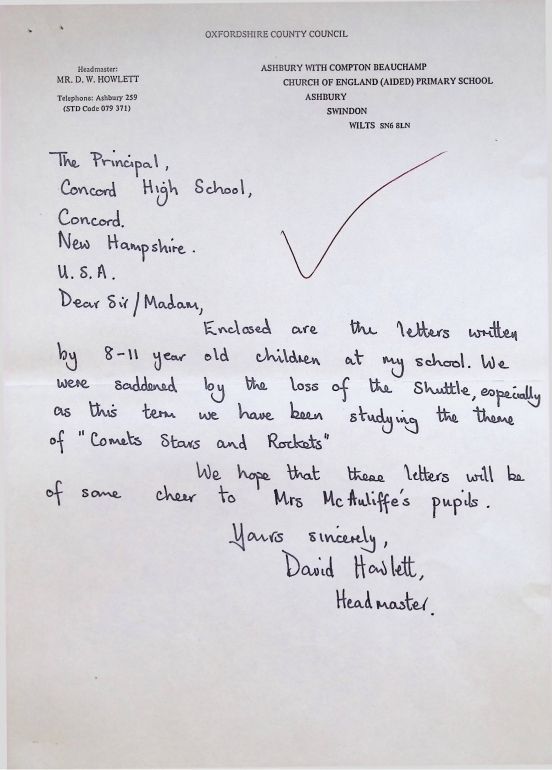 OXFORDSHIRE COUNTY COUNCIL
Headmaster:
MR. D. W. HOWLETT
Telephone: Ashbury 259
(STD Code 079 371)
ASHBURY WITH COMPTON BEAUCHAMP
CHURCH OF ENGLAND (AIDED) PRIMARY SCHOOL
ASHBURY
SWINDON
WILTS SN6 8LN
The Principal,
Concord High School,
Concord.
New Hampshire.
U.S.A.
Dear Sir/Madam,
Enclosed are the letters written
by 8-11 year old children at my school. We
were saddened by the loss of the Shuttle, especially
as this term we have been studying the theme
of "Comets Stars and Rockets"
We hope that these letters will be
of some cheer to Mrs McAuliffe's pupils.
Yours sincerely,
David Howlett,
Headmaster.